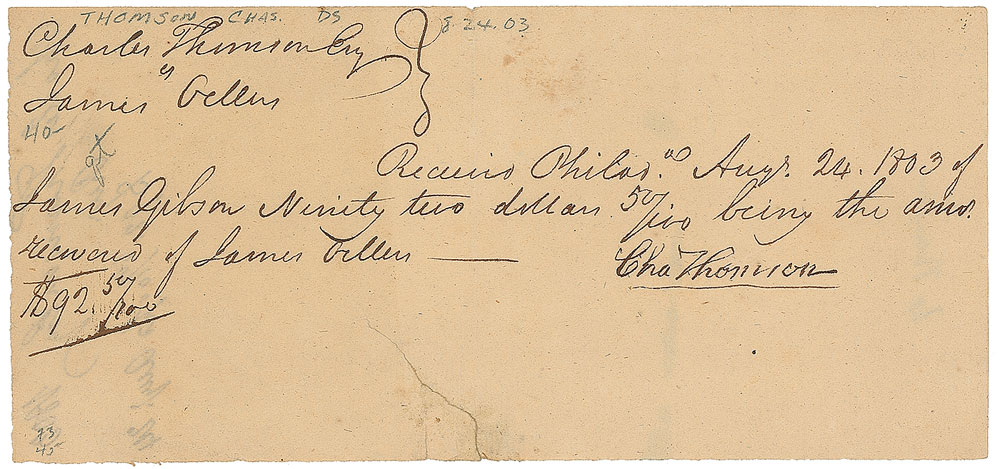 THOMSON CHAS. DS 8.24.03
Charles Thomson Esq
vs
James Oellers
40-
Received Philad.ª Augt. 24. 1803 of
James Gibson Ninety two dollars 50/100 being the amot.
recovered of James Oellers ——
Cha Thomson
$92. 50/100